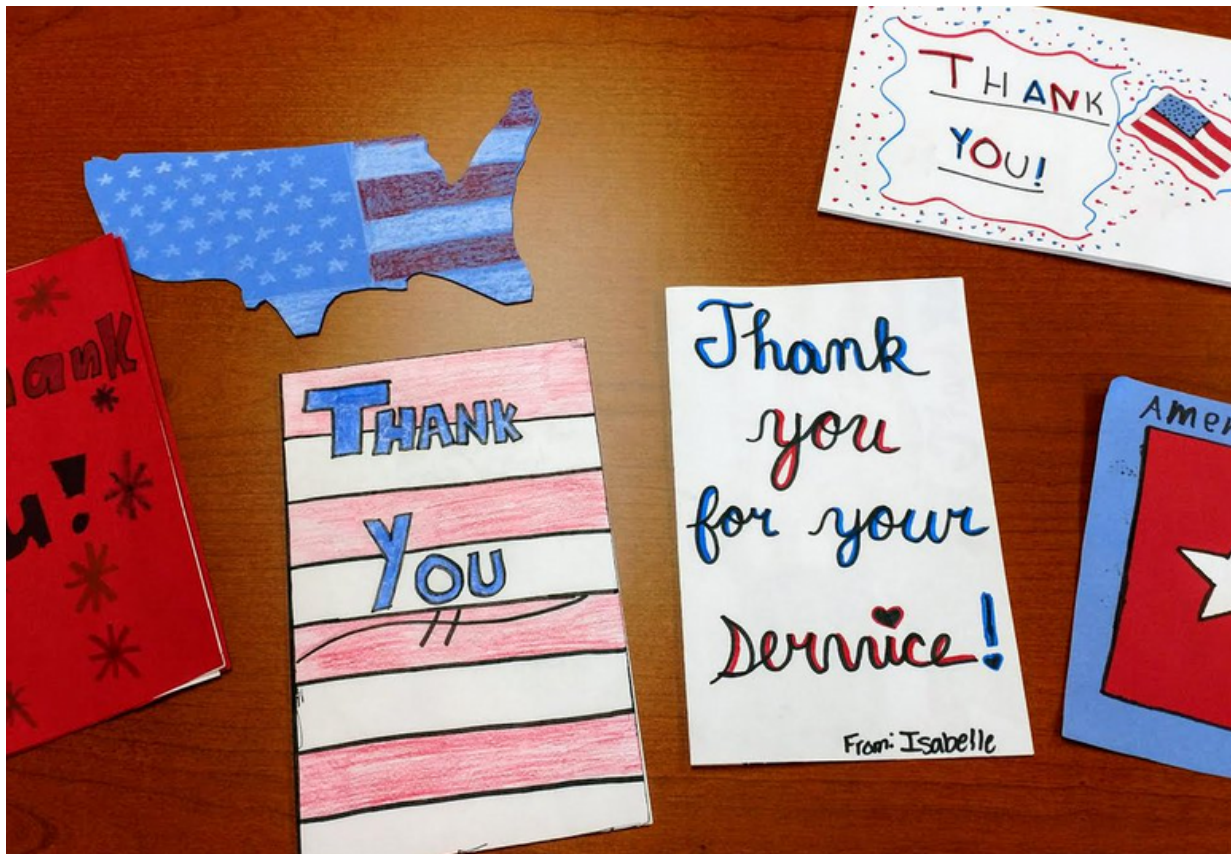 THANK
YOU!
hank
u!
THANK
YOU
Thank
you
for your
Service!
From: Isabelle
Amer